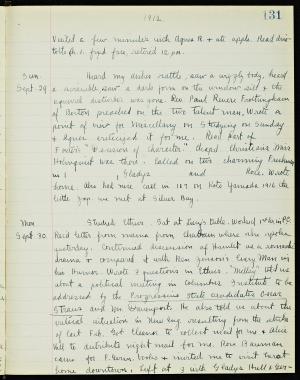 1912
131
Visited a few minutes with Agnes R. & ate apple. Read Aris-
totle. retired 12 P.M.
Sun.
Sept. 29
Heard my aulos rattle, saw a wiggly body, heard
a scramble, saw a dark form on the window sill & the
squirrel disturber was gone. Rev. Paul Revere Frothingham
of Boston preached on the five talent man. Wrote a
point of view for Miscellany on Studying on Sunday
& Agnes criticized it for me. Read part of
"Decision of Character" Chapel Christians Miss
Holmquist was there. Called on this charming Freshman
in 1 Gladys and Rose. Wrote
home. Also had nice call in 107 on Kate Yamada 1916 the
little Jap. we met at Silver Bay.
Mon
Sept 30.
Studied Ethics. Sat at Lucy's table. Worked
Had letter from mama from where she spoke
yesterday. Continued discussion of Hamlet as a romantic
drama & compared it with Ben Jonson's Every Man in
his Humor. Wrote 3 questions in Ethics. "Milly" told us
about a political meeting in Columbus Institute to be
addressed by the Progressive State candidates Oscar
Straus and Mr. Davenport. He also told us about the
political situation in New Eng. resulting from the strike
of last Feb. Got Eleanor to collect mail for me & Alice
Hill to distribute night mail for me. Rose Bauman
came for books & invited me to visit her at
home downtown. Left at 3 with Gladys Hull &